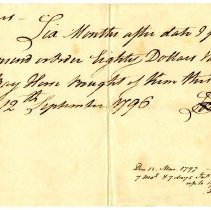 Six Months after date I p
or Order Eighty Dollars
Bay Horse bought of them this
12th September 1796
Due 12 Mar 1797
7 mos & 7 days Int